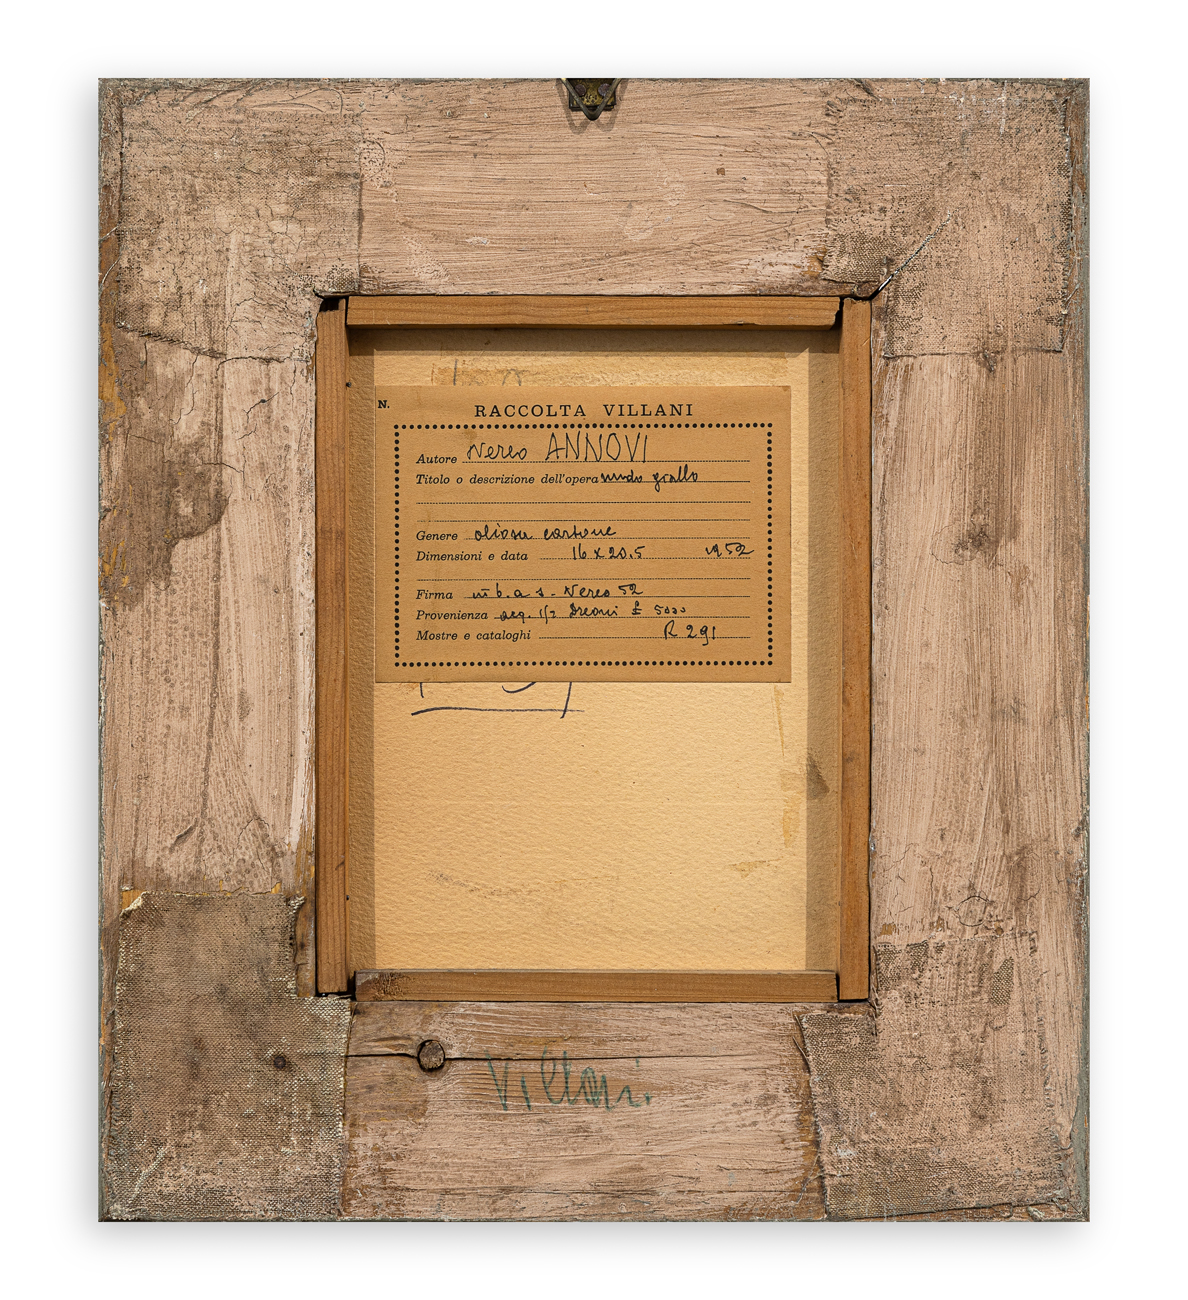 N.
RACCOLTA VILLANI
Autore Nereo ANNOVI
Titolo o descrizione dell'opera nudo giallo
Genere olio su cartone
Dimensioni e data 16 x 20.5 1952
Firma in b. a s. Nereo 52
Provenienza acq. £ 5000
Mostre e cataloghi R 291
Villani